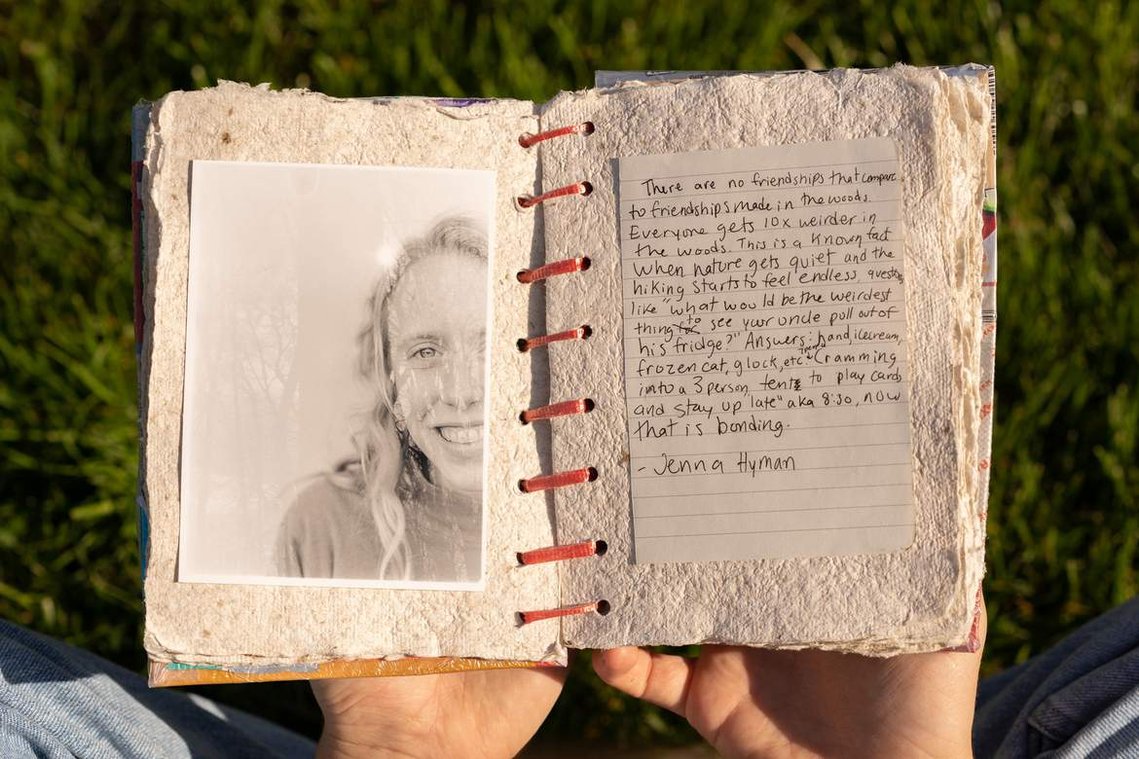 There are no friendships that compare
to friendships made in the woods.
Everyone gets 10x weirder in
the woods. This is a known fact
when nature gets quiet and the
hiking starts to feel endless,
like "what would be the weirdest
thing to see your uncle pull out of
his fridge?" Answers: hand, icecream,
frozen cat, glock, etc. Cramming
into a 3 person tent to play cards
and stay up late" aka 8:30, now
that is bonding.
- Jenna Hyman